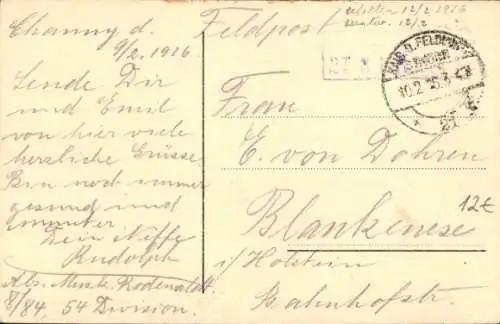 Chauny d.
9/2. 1916
Sende Dir
und Emil
von hier viele
herzliche Grüsse
Bin noch immer
gesund und
munter.
Dein Neffe
Rudolph
Abs. Musk. Rodenwaldt
8/84, 54 Division.
Feldpost
erhalten 12/2 1916
12/2
10.2
Frau
E. von Dohren
Blankenese
i/ Holstein
Bahnhofstr.
12€